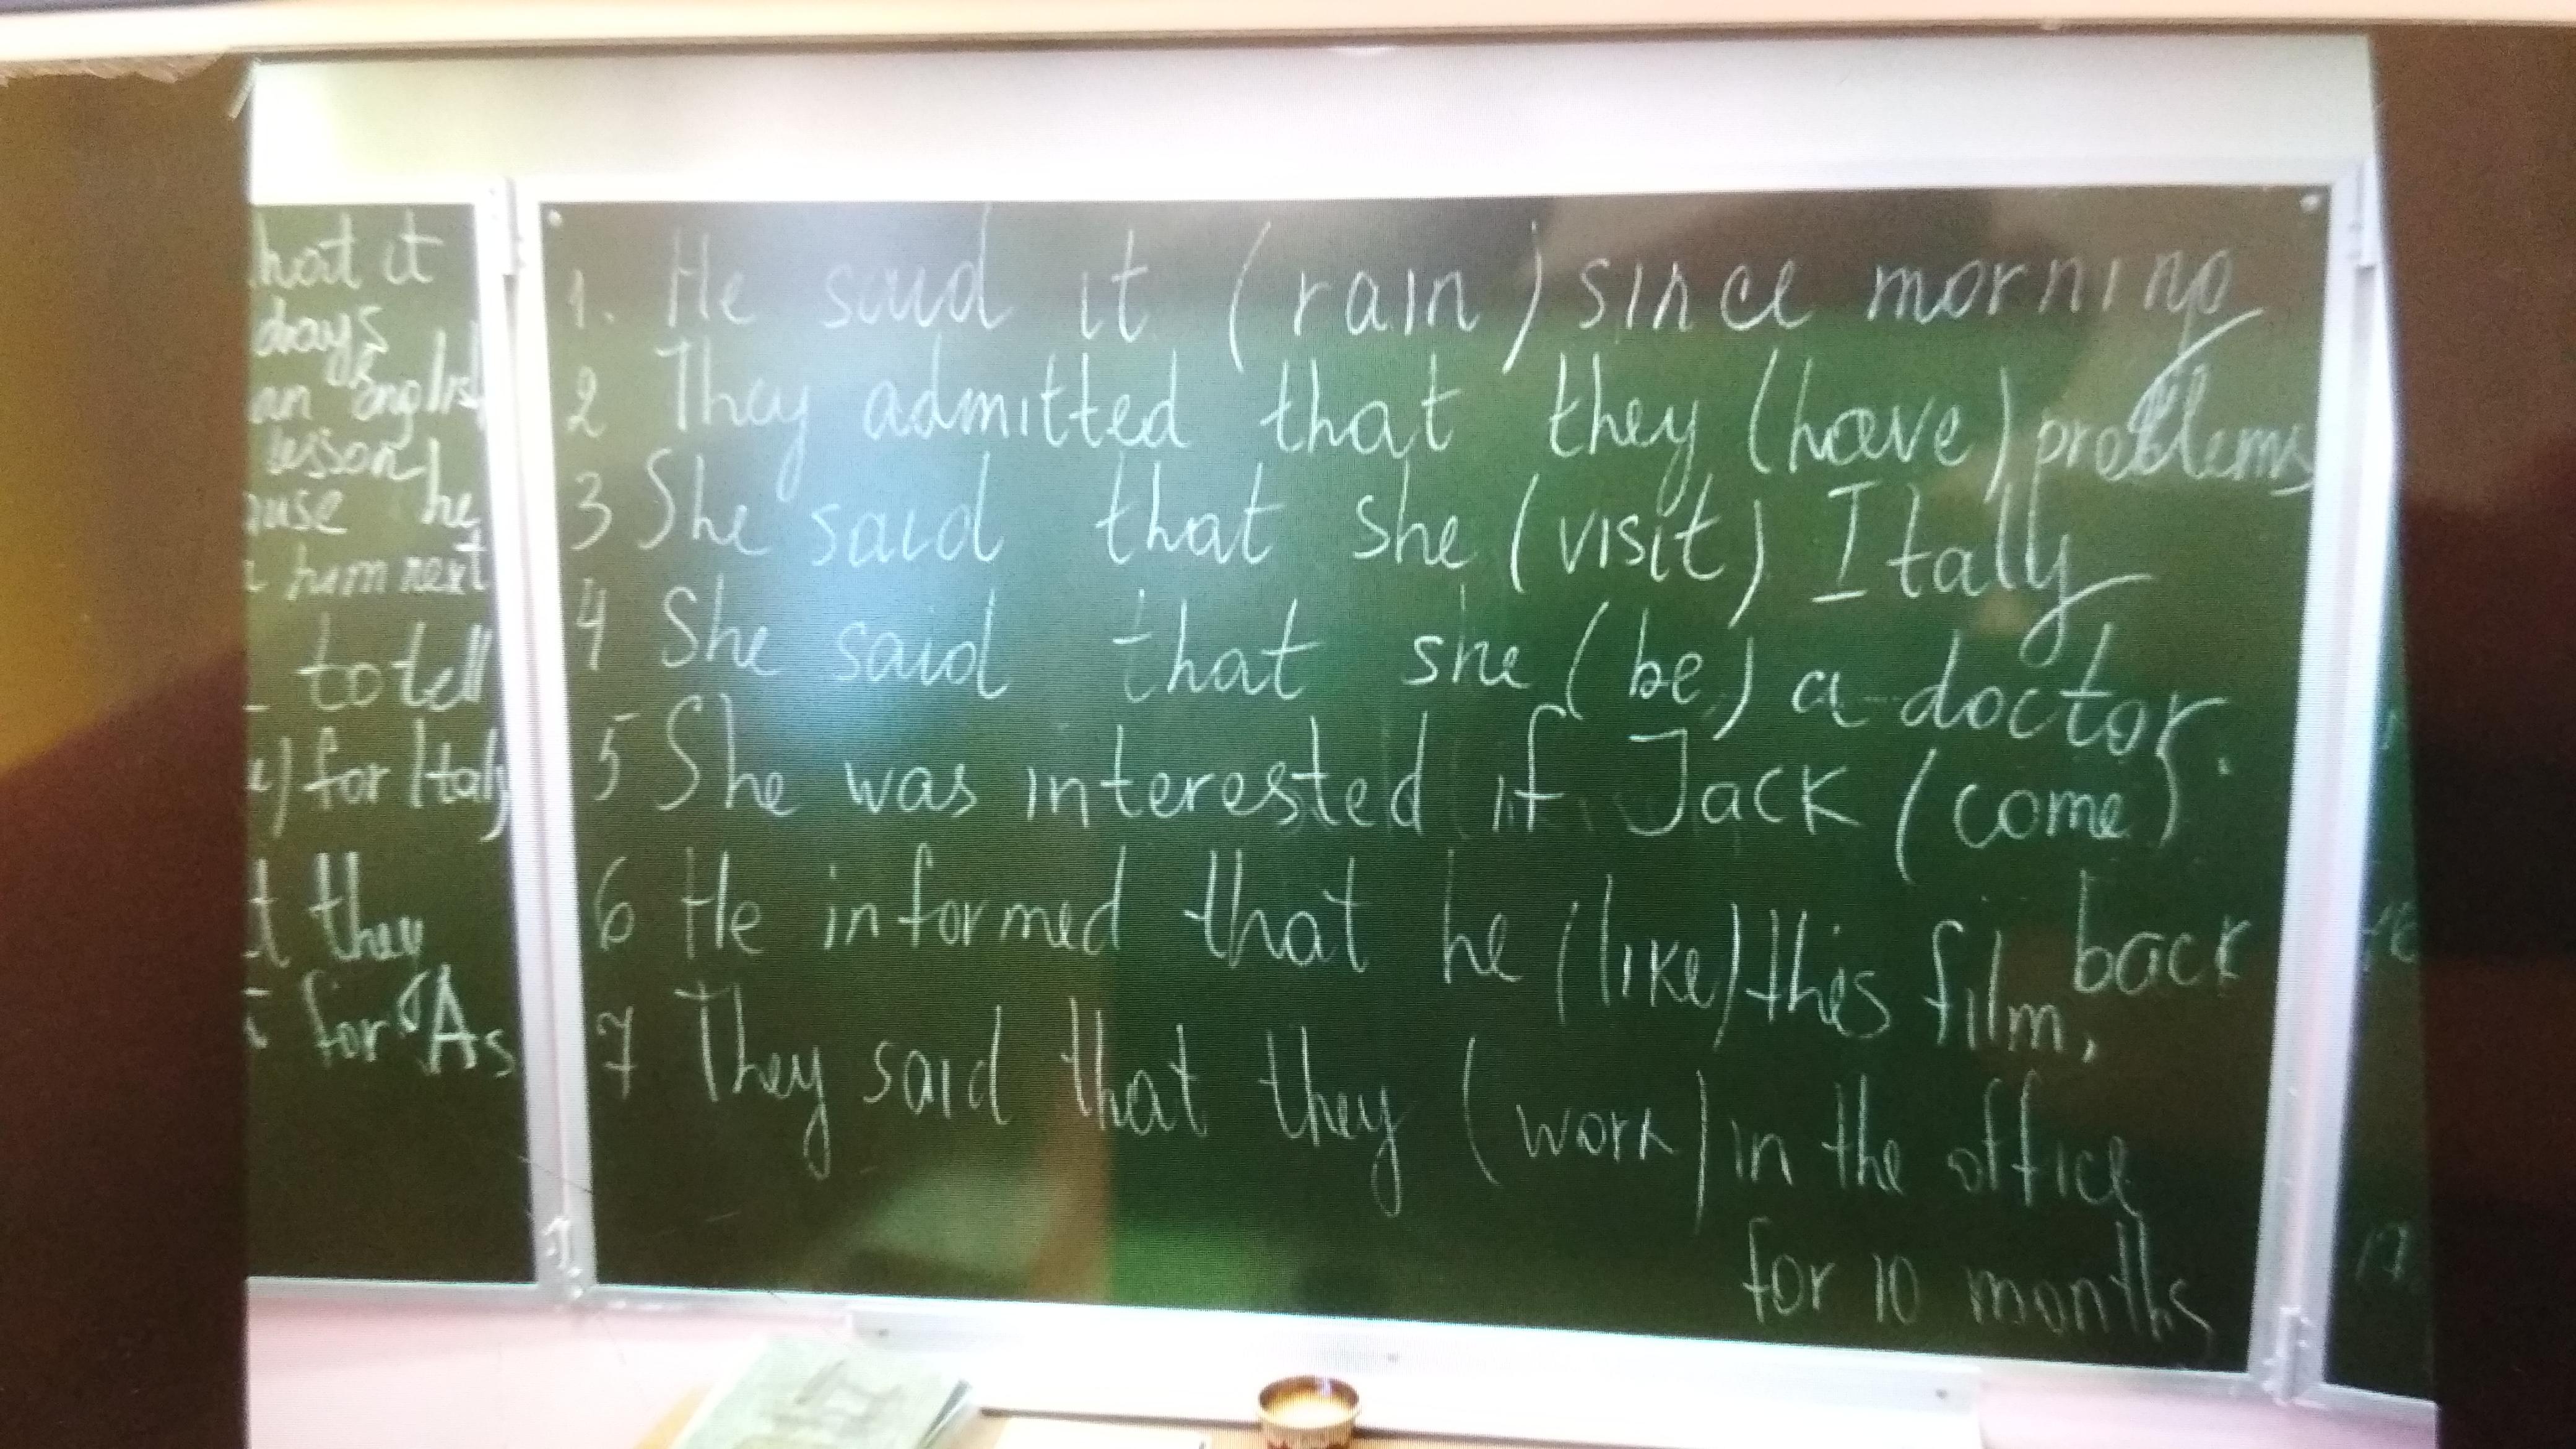 hat it
days
an englis
lesson he
ause he
him next
to tell
) for Italy
t they
for "As
1. He said it (rain) since morning
2 They admitted that they (have) problems
3 She said that she (visit) Italy
4 She said that she (be) a doctor.
5 She was interested if Jack (come)
back
6 He informed that he (like) this film.
7 They said that they (work) in the office
for 10 months